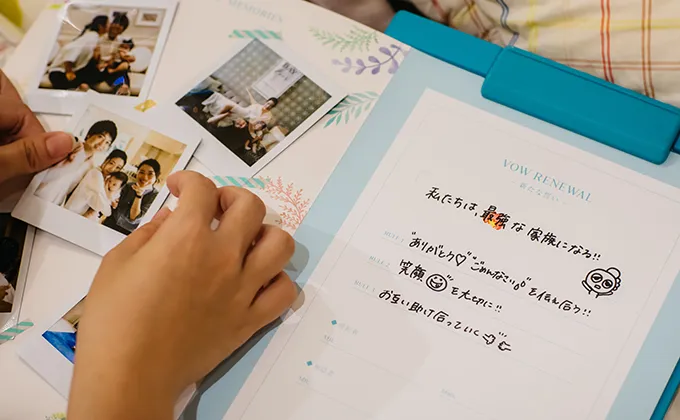 MEMORIES
VOW RENEWAL
新たな誓い
私たちは、最強な家族になる!!
RULE 1 "ありがとう♡" "ごめんなさい" を伝え合う!!
RULE 2 笑顔 を大切に!!
RULE 3 お互い助け合っていく